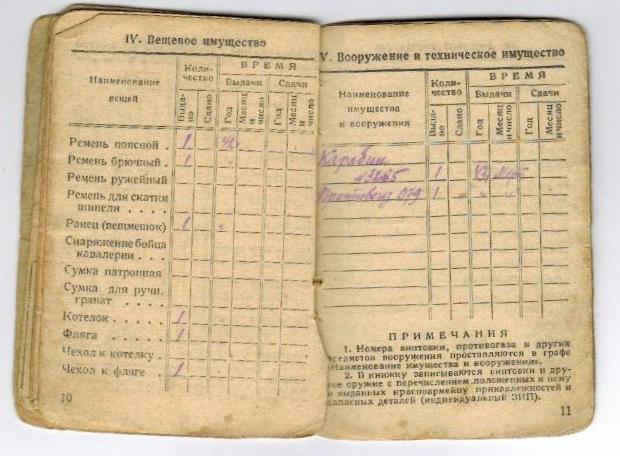 IV. Вещевое имущество
Наименование
вещей
Коли-
чество
ВРЕМЯ
Выдачи
Сдачи
Выда-
но
Сдано
Год
Месяц
и
число
Год
Месяц
и число
Ремень поясной . 1 42
Ремень брючный . 1 "
Ремень ружейный
Ремень для скатки
шинели . . . .
Ранец (вещмешок) 1 "
Снаряжение бойца
кавалерии . . .
Сумка патронная
Сумка для ручн.
гранат . . . . .
Котелок . . . . 1
Фляга . . . . . 1
Чехол к котелку .
Чехол к фляге . . 1
10
V. Вооружение и техническое имущество
Наименование
имущества
и вооружения
Коли-
чество
ВРЕМЯ
Выдачи
Сдачи
Выда-
но
Сдано
Год
Месяц
и число
Год
Месяц
и число
Карабин
№ 1 42
1 " " "
ПРИМЕЧАНИЯ
1. Номера винтовки, противогаза и других
предметов вооружения проставляются в графе
«Наименование имущества и вооружения».
2. В книжку записываются винтовки и дру-
гое оружие с перечислением положенных к нему
и выданных красноармейцу принадлежностей и
запасных деталей (индивидуальный ЗИП).
11